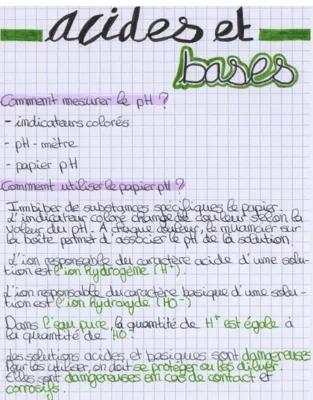 acides et
bases
Comment mesurer le pH ?
- indicateurs colorés
- pH - mètre
- papier pH
Comment utiliser le papier pH ?
Imbiber de substances spécifiques le papier.
L'indicateur coloré change de couleur selon la
valeur du pH. A chaque couleur, le nuancier sur
la boîte permet d'associer le pH de la solution.
L'ion responsable du caractère acide d'une solu-
tion est l'ion hydrogène (H+).
L'ion responsable du caractère basique d'une solu-
tion est l'ion hydroxyde (HO-)
Dans l'eau pure, la quantité de H+ est égale à
la quantité de HO-
Les solutions acides et basiques sont dangereuses
Pour les utiliser, on doit se protéger ou les diluer.
Elles sont dangereuses en cas de contact et
corrosifs.